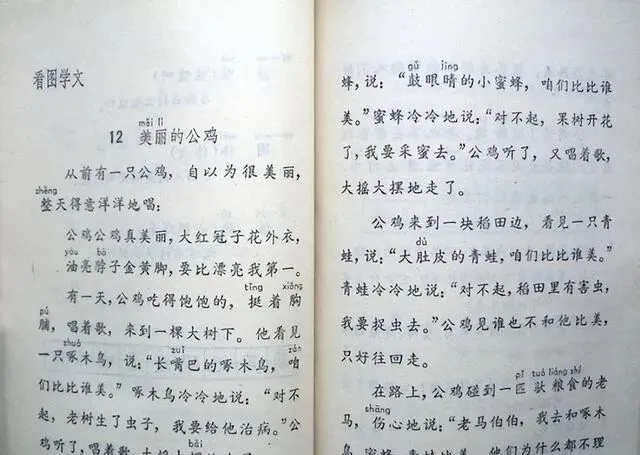 看图学文
měi lì
12 美丽的公鸡
从前有一只公鸡，自以为很美丽，
zhěng
整天得意洋洋地唱：
公鸡公鸡真美丽，大红冠子花外衣，
yóu bó
油亮脖子金黄脚，要比漂亮我第一。
tǐng xiōng
有一天，公鸡吃得饱饱的，挺着胸
pú
脯，唱着歌，来到一棵大树下。他看见
zhuó zuǐ zán
一只啄木鸟，说：“长嘴巴的啄木鸟，咱
们比比谁美。”啄木鸟冷冷地说：“对不
起，老树生了虫子，我要给他治病。”公
bǎi
鸡听了，唱着歌，
gǔ jīng
蜂，说：“鼓眼睛的小蜜蜂，咱们比比谁
美。”蜜蜂冷冷地说：“对不起，果树开花
了，我要采蜜去。”公鸡听了，又唱着歌，
大摇大摆地走了。
公鸡来到一块稻田边，看见一只青
dù
蛙，说：“大肚皮的青蛙，咱们比比谁美。”
青蛙冷冷地说：“对不起，稻田里有害虫，
我要捉虫去。”公鸡见谁也不和他比美，
只好往回走。
pǐ tuó liáng shí
在路上，公鸡碰到一匹驮粮食的老
shāng
马，伤心地说：“老马伯伯，我去和啄木
鸟、蜜蜂、青蛙比美，他们为什么都不理